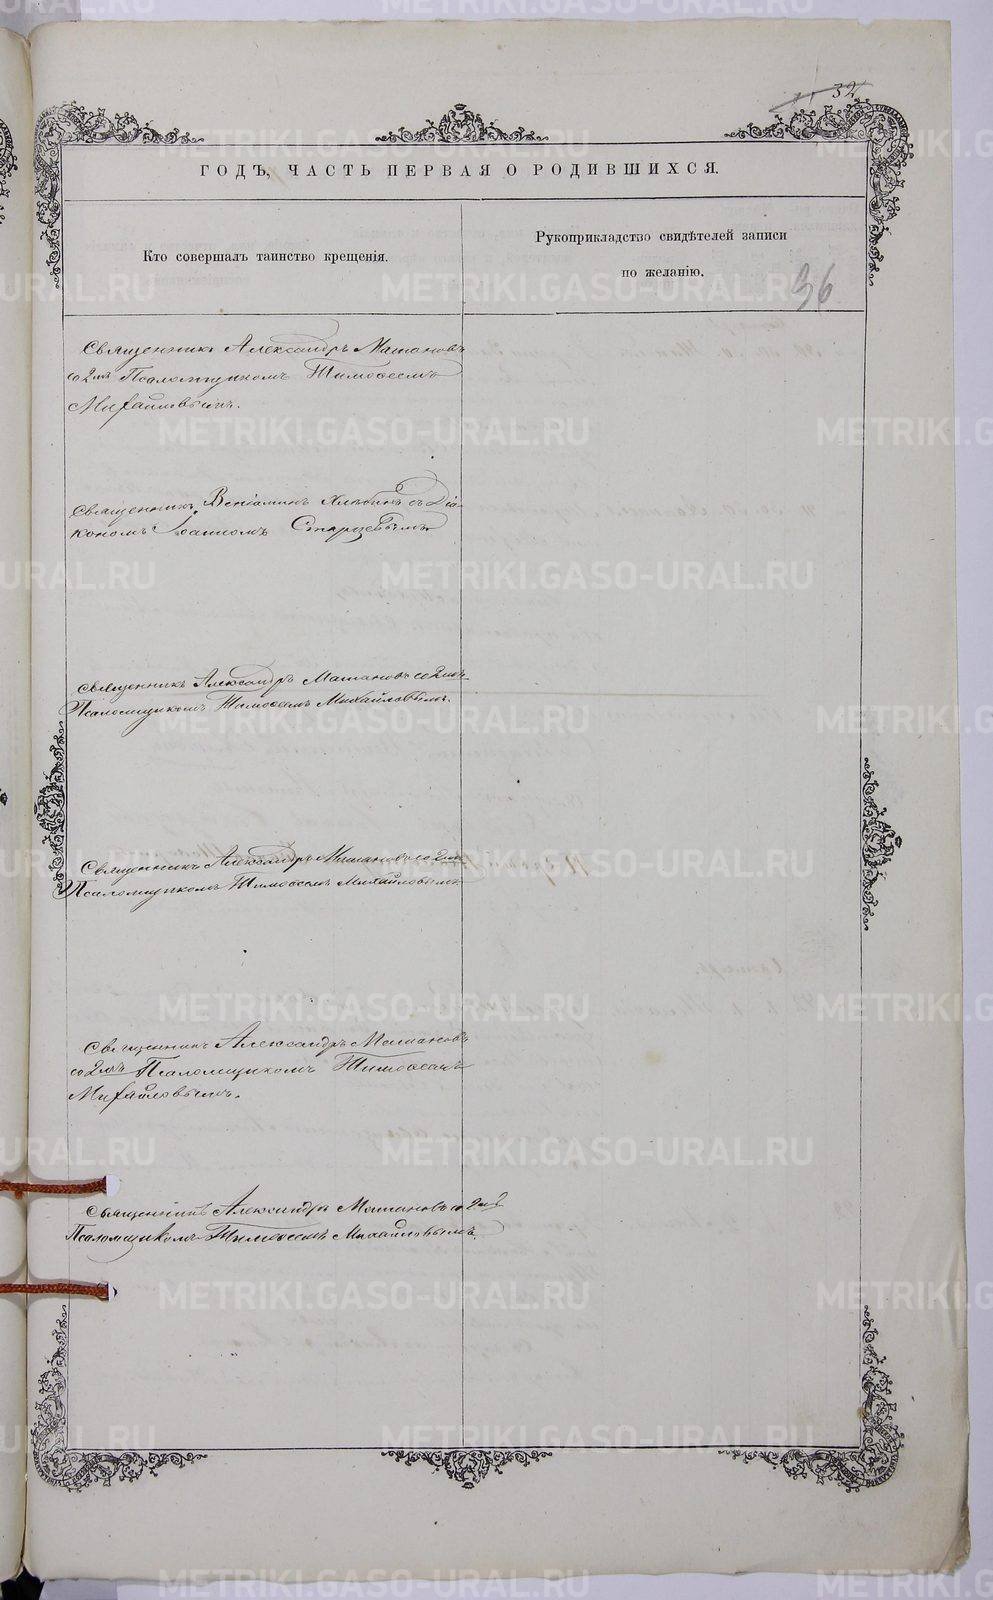 32
ГОДЪ, ЧАСТЬ ПЕРВАЯ О РОДИВШИХСЯ.
Кто совершалъ таинство крещенія.
Рукоприкладство свидѣтелей записи
по желанію.
36
Священникъ Александръ Матановъ
со 2мъ Псаломщикомъ Тимофеемъ
Михайловымъ.
Священникъ Веніаминъ Хлѣбинъ съ Діа-
кономъ Іоанномъ Старцевымъ
Священникъ Александръ Матановъ со 2мъ
Псаломщикомъ Тимофеемъ Михайловымъ.
Священникъ Александръ Матановъ со 2мъ
Псаломщикомъ Тимофеемъ Михайловымъ
Священникъ Александръ Матановъ
со 2мъ Псаломщикомъ Тимофеемъ
Михайловымъ.
Священникъ Александръ Матановъ со 2мъ
Псаломщикомъ Тимофеемъ Михайловымъ.
METRIKI.GASO-URAL.RU